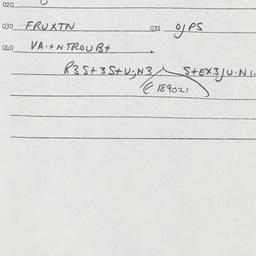 020
030 FRUXTN 031 OJPS
040 VA·+NTROUB+
R3S+3S+U;N3 S+EX3JU·N1-
E 189021